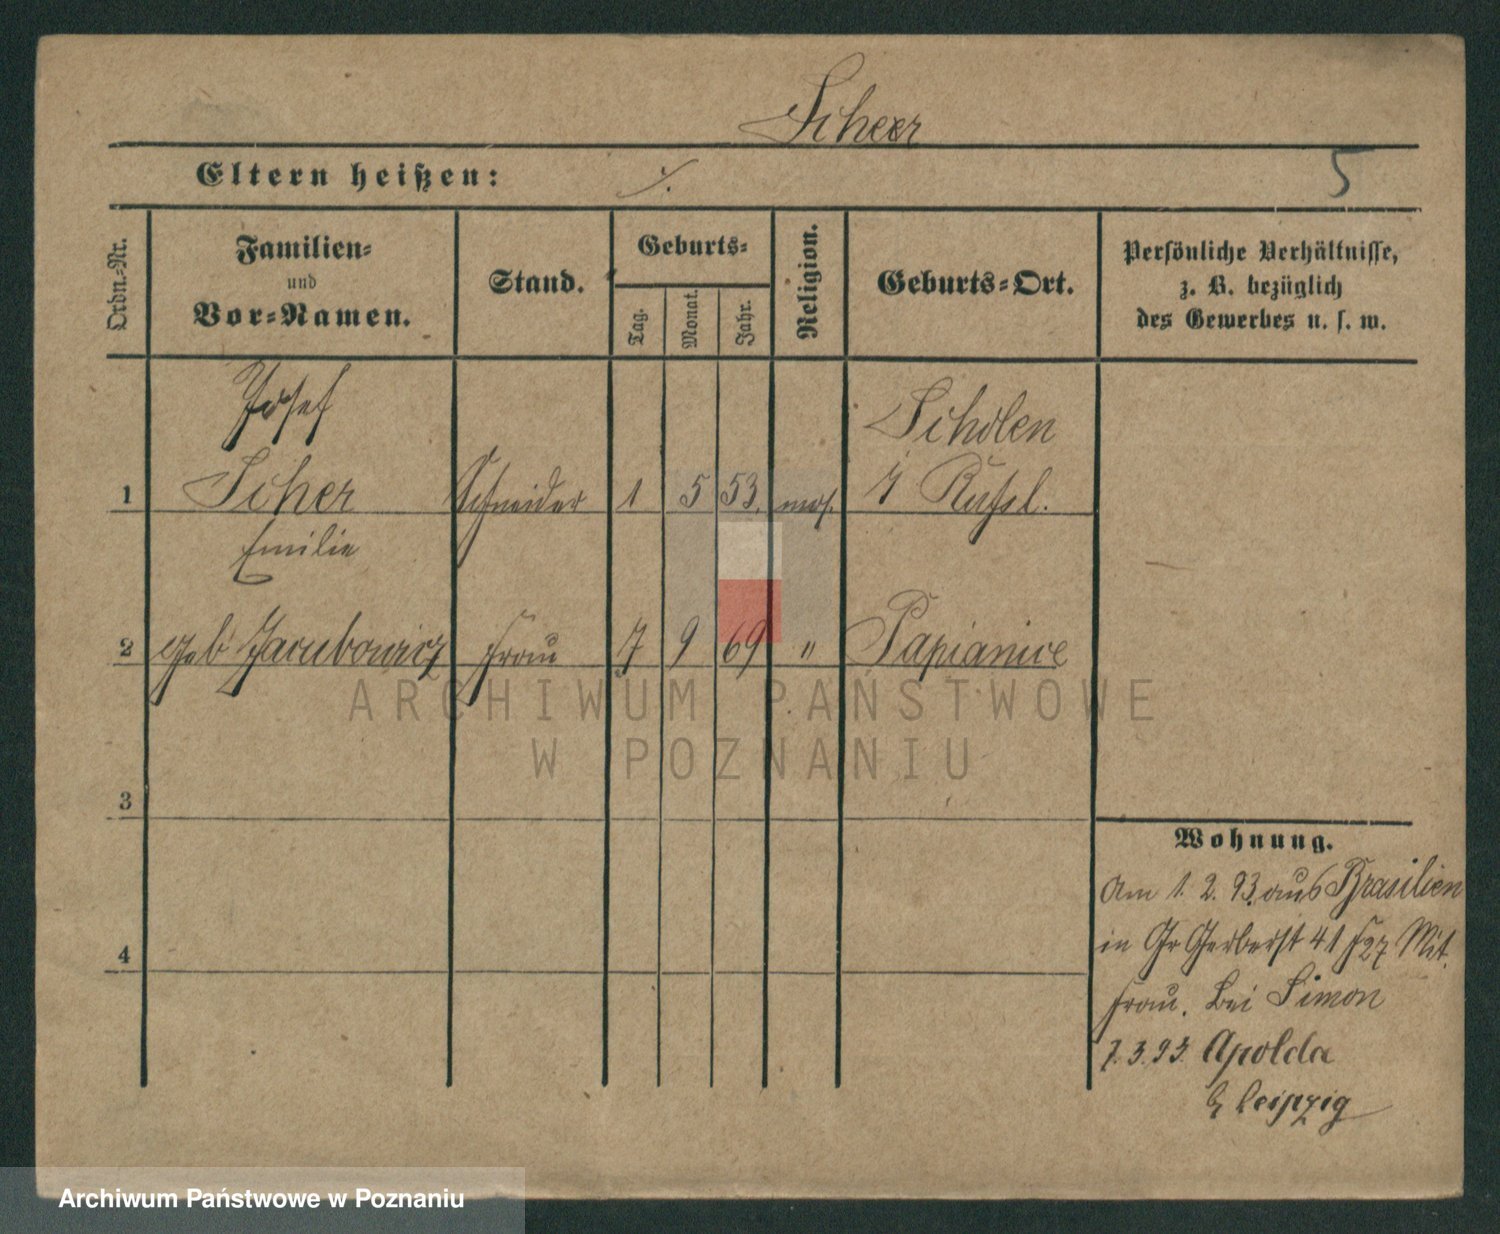 Scheer
Eltern heißen: ./.
5
Ordn.-Nr.
Familien-
und
Vor-Namen.
Stand.
Geburts-
Tag.
Monat.
Jahr.
Religion.
Geburts-Ort.
Persönliche Verhältnisse,
z. B. bezüglich
des Gewerbes u. s. w.
Josef
Scholen
1 Scher Schneider 1 5 53. mos. Russl.
Emilie
2 geb Jacubowicz Frau 7 9 69 " Papianice
3
4
Wohnung.
Am 1. 2. 93. aus Brasilien
in Gr Gerberst 41 Mit
Frau. bei Simon
7. 3. 93. Apolda
b Leipzig
ARCHIWUM PAŃSTWOWE
W POZNANIU
Archiwum Państwowe w Poznaniu